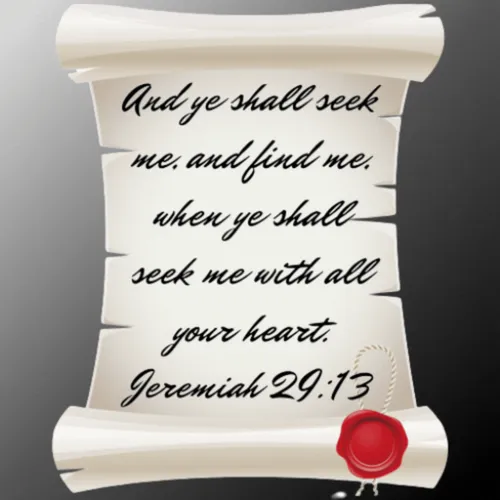 And ye shall seek
me, and find me,
when ye shall
seek me with all
your heart.
Jeremiah 29:13